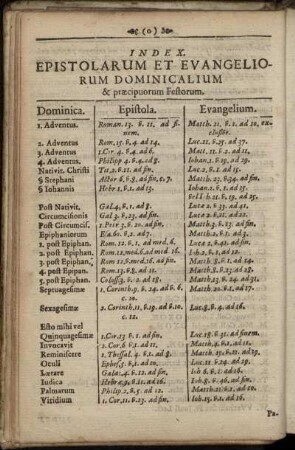 (0)
INDEX
EPISTOLARUM ET EVANGELIO-
RUM DOMINICALIUM
& præcipuorum Festorum.
Dominica. Epistola. Evangelium.
1. Adventus. Roman. 13. ℣. 11. ad fi- Matth. 21. ℣. 1. ad 10. ex-
nem. clusive.
2. Adventus Rom. 15. ℣. 4. ad 14. Luc. 21. ℣. 25. ad 37.
3. Adventus 1. Cor 4. ℣. 4. ad 6. Matt. 11. ℣. 2. ad 11.
4. Adventus Philipp 4. ℣. 4. ad 8. Iohan. 1. ℣. 19. ad 29.
Nativit. Christi Tit. 2. ℣. 11. ad fin. Luc. 2. ℣. 1. ad 15.
§ Stephani Actor 6. ℣. 8. ad fin. c. 7. Matth. 23. ℣. 34. ad fin.
§ Iohannis Hebr 1. ℣. 1. ad 13. Iohan. 1. ℣. 1. ad 15.
Post Nativit. Gal. 4. ℣. 1. ad 8. Luc. 2. ℣. 33. ad 41.
Circumcisionis Gal 3. ℣. 23. ad fin. Lucæ 2. ℣. 21. ad 22.
Post circumcis. 1. Petr 3. ℣. 20. ad fin. Matth. 3. ℣. 13. ad fin.
Epiphaniorum Esa. 60. ℣. 1. ad 7. Matth. 2. ℣. 1. ad 13.
1. post Epiphan. Rom. 12. ℣. 1. ad med. 6. Lucæ 2. ℣. 41. ad fin.
2. post Epiphan. Rom. 12. ℣. med. 6. ad 16. Ioh. 2. ℣. 1. ad 12.
3. post Epiphan. Rom 12. ℣. med. 16. ad fin. Matth. 8. ℣. 1. ad 14.
4. post Epipan. Rom. 13. ℣. 8. ad 11. Matth. 8. ℣. 23. ad 28.
5. post Epiphan Matth. 13. ℣. 24. ad 31.
Septuagesimæ 1. Corinth. 9. ℣. 24. ad ℣. 6. Matth. 20. ℣. 1. ad 17.
c. 10.
Sexagesimæ 2. Corinth. 11. ℣. 19. ad ℣. 10. Luc. 8. ℣. 4. ad 16.
c. 12.
Esto mihi vel
Quinquagesimæ 1. Cor. 13. ℣. 1. ad fin. Luc. 18. ℣. 31. ad finem.
Invocavit 2. Cor. 6. ℣. 1. ad 11. Matth. 4. ℣. 1. ad 12.
Reminiscere 1. Thessal. 4. ℣. 1. ad 8. Matth. 15. ℣. 21. ad 29.
Oculi Ephes. 5. ℣. 1. ad 10. Luc. 11. ℣. 14. ad 29.
Lætare Galat. 4. ℣. 21. ad fin. Ioh 6. ℣. 1. ad 16.
Iudica Hebr. 9. ℣. 11. ad 16. Ioh. 8. ℣. 46. ad fin.
Palmarum Philip. 2. ℣. 5. ad 12. Matth. 21. ℣. 1. ad 10.
Viridium 1. Cor. 11. ℣. 23. ad fin. Ioh. 13. ℣. 1. ad 16.
Pa-